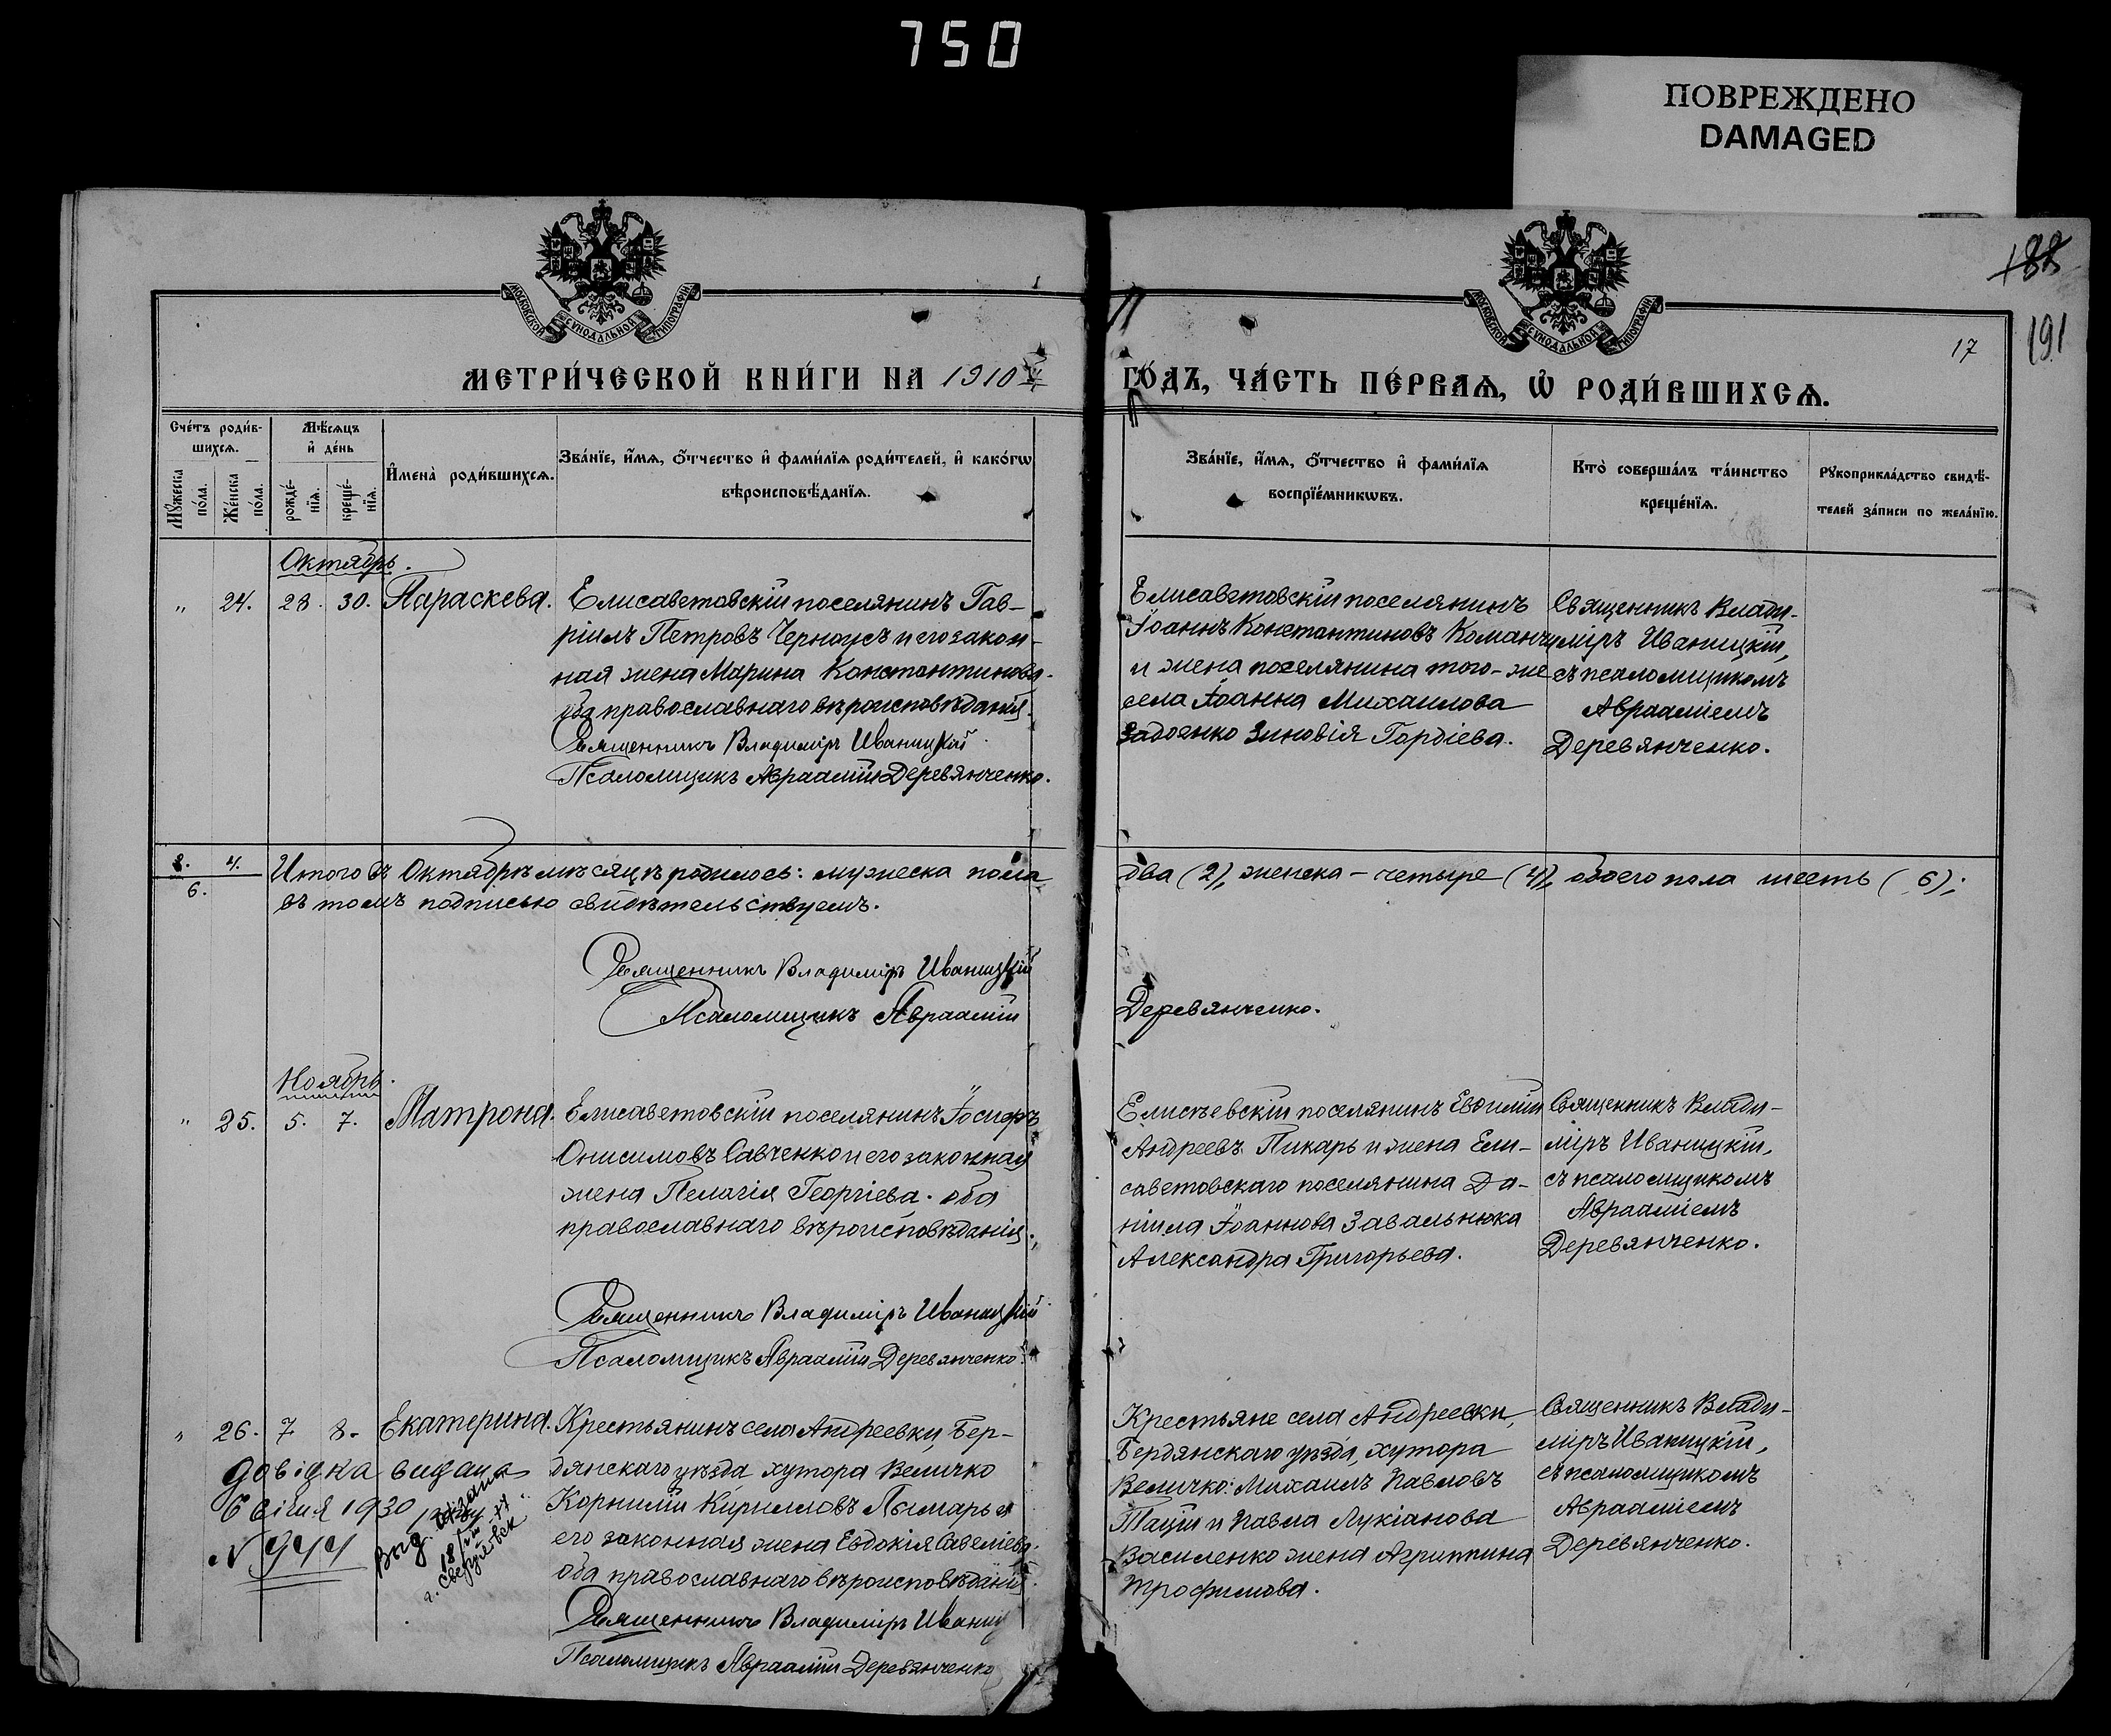 750
ПОВРЕЖДЕНО
DAMAGED
МОСКОВСКОЙ СѴНОДАЛЬНОЙ ТИПОГРАФІИ
МОСКОВСКОЙ СѴНОДАЛЬНОЙ ТИПОГРАФІИ
188
191
17
МЕТРИ́ЧЕСКОЙ КНИ́ГИ НА 1910
ГО́ДЪ, ЧА́СТЬ ПЕ́РВАѦ, Ѡ҆ РОДИ́ВШИХСѦ.
Сче́тъ роди́в-
шихсѧ.
Мꙋжеска по́ла.
Же́нска по́ла.
Мѣ́сѧцъ
и҆ де́нь
рожде́-
нїѧ.
креще́-
нїѧ.
И҆мена̀ роди́вшихсѧ.
Зва́нїе, и҆́мѧ, ѻ҆́тчество и҆ фами́лїѧ роди́телей, и҆ како́гѡ
вѣроисповѣ́данїѧ.
Зва́нїе, и҆́мѧ, ѻ҆́тчество и҆ фами́лїѧ
воспрїе́мникѡвъ.
Кто̀ соверша́лъ та́инство
креще́нїѧ.
Рꙋкоприкла́дство свидѣ́-
телей за́писи по жела́нїю.
Октябрь.
" 24. 28. 30. Параскева.
Елисаветовскій поселянинъ Гав-
ріилъ Петровъ Черноусъ и его закон-
ная жена Марина Константинова.
оба православнаго вѣроисповѣданія.
Священникъ Владиміръ Иваницкій
Псаломщикъ Авраамій Деревянченко.
Елисаветовскій поселянинъ
Іоаннъ Константиновъ
и жена поселянина того-же
села Іоанна Михаилова
Задоянко Зиновія Гордіева.
Священникъ Влади-
міръ Иваницкій,
съ псаломщикомъ
Авраамiемъ
Деревянченко.
2. 4.
6.
Итого въ Октябрѣ мѣсяцѣ родилось: мужеска пола
два (2), женска - четыре (4), обоего пола шесть (6);
въ томъ подписью свидѣтельствуемъ.
Священникъ Владиміръ Иваницкій
Псаломщикъ Авраамій
Деревянченко.
Ноябрь.
" 25. 5. 7. Матрона.
Елисаветовскій поселянинъ Іосифъ
Онисимовъ Савченко и его законная
жена Пелагія Георгіева. оба
православнаго вѣроисповѣданія.
Священникъ Владиміръ Иваницкій
Псаломщикъ Авраамій Деревянченко.
Елисѣевскій поселянинъ Евѳимій
Андреевъ Пикарь и жена Ели-
саветовскаго поселянина Да-
ніила Іоаннова Завальнюка
Александра Григорьева.
Священникъ Влади-
міръ Иваницкій,
съ псаломщикомъ
Авраамiемъ
Деревянченко.
" 26. 7 8. Екатерина.
Крестьянинъ села Андреевки, Бер-
дянскаго уѣзда хутора Величко
Корнилій Кирилловъ Лымарь и
его законная жена Евдокія Савеліева.
оба православнаго вѣроисповѣданія.
Священникъ Владиміръ Иваниц
Псаломщикъ Авраамій Деревянченко
Крестьяне села Андреевки,
Бердянскаго уѣзда, хутора
Величко: Михаилъ Павловъ
Тацій и Павла Лукіанова
Василенко жена Агриппина
Трофимова.
Священникъ Влади-
міръ Иваницкій,
съ псаломщикомъ
Авраамiемъ
Деревянченко.
Довідка видана
6 січня 1930
N 944
Выд.
18/III
г. Свердловск